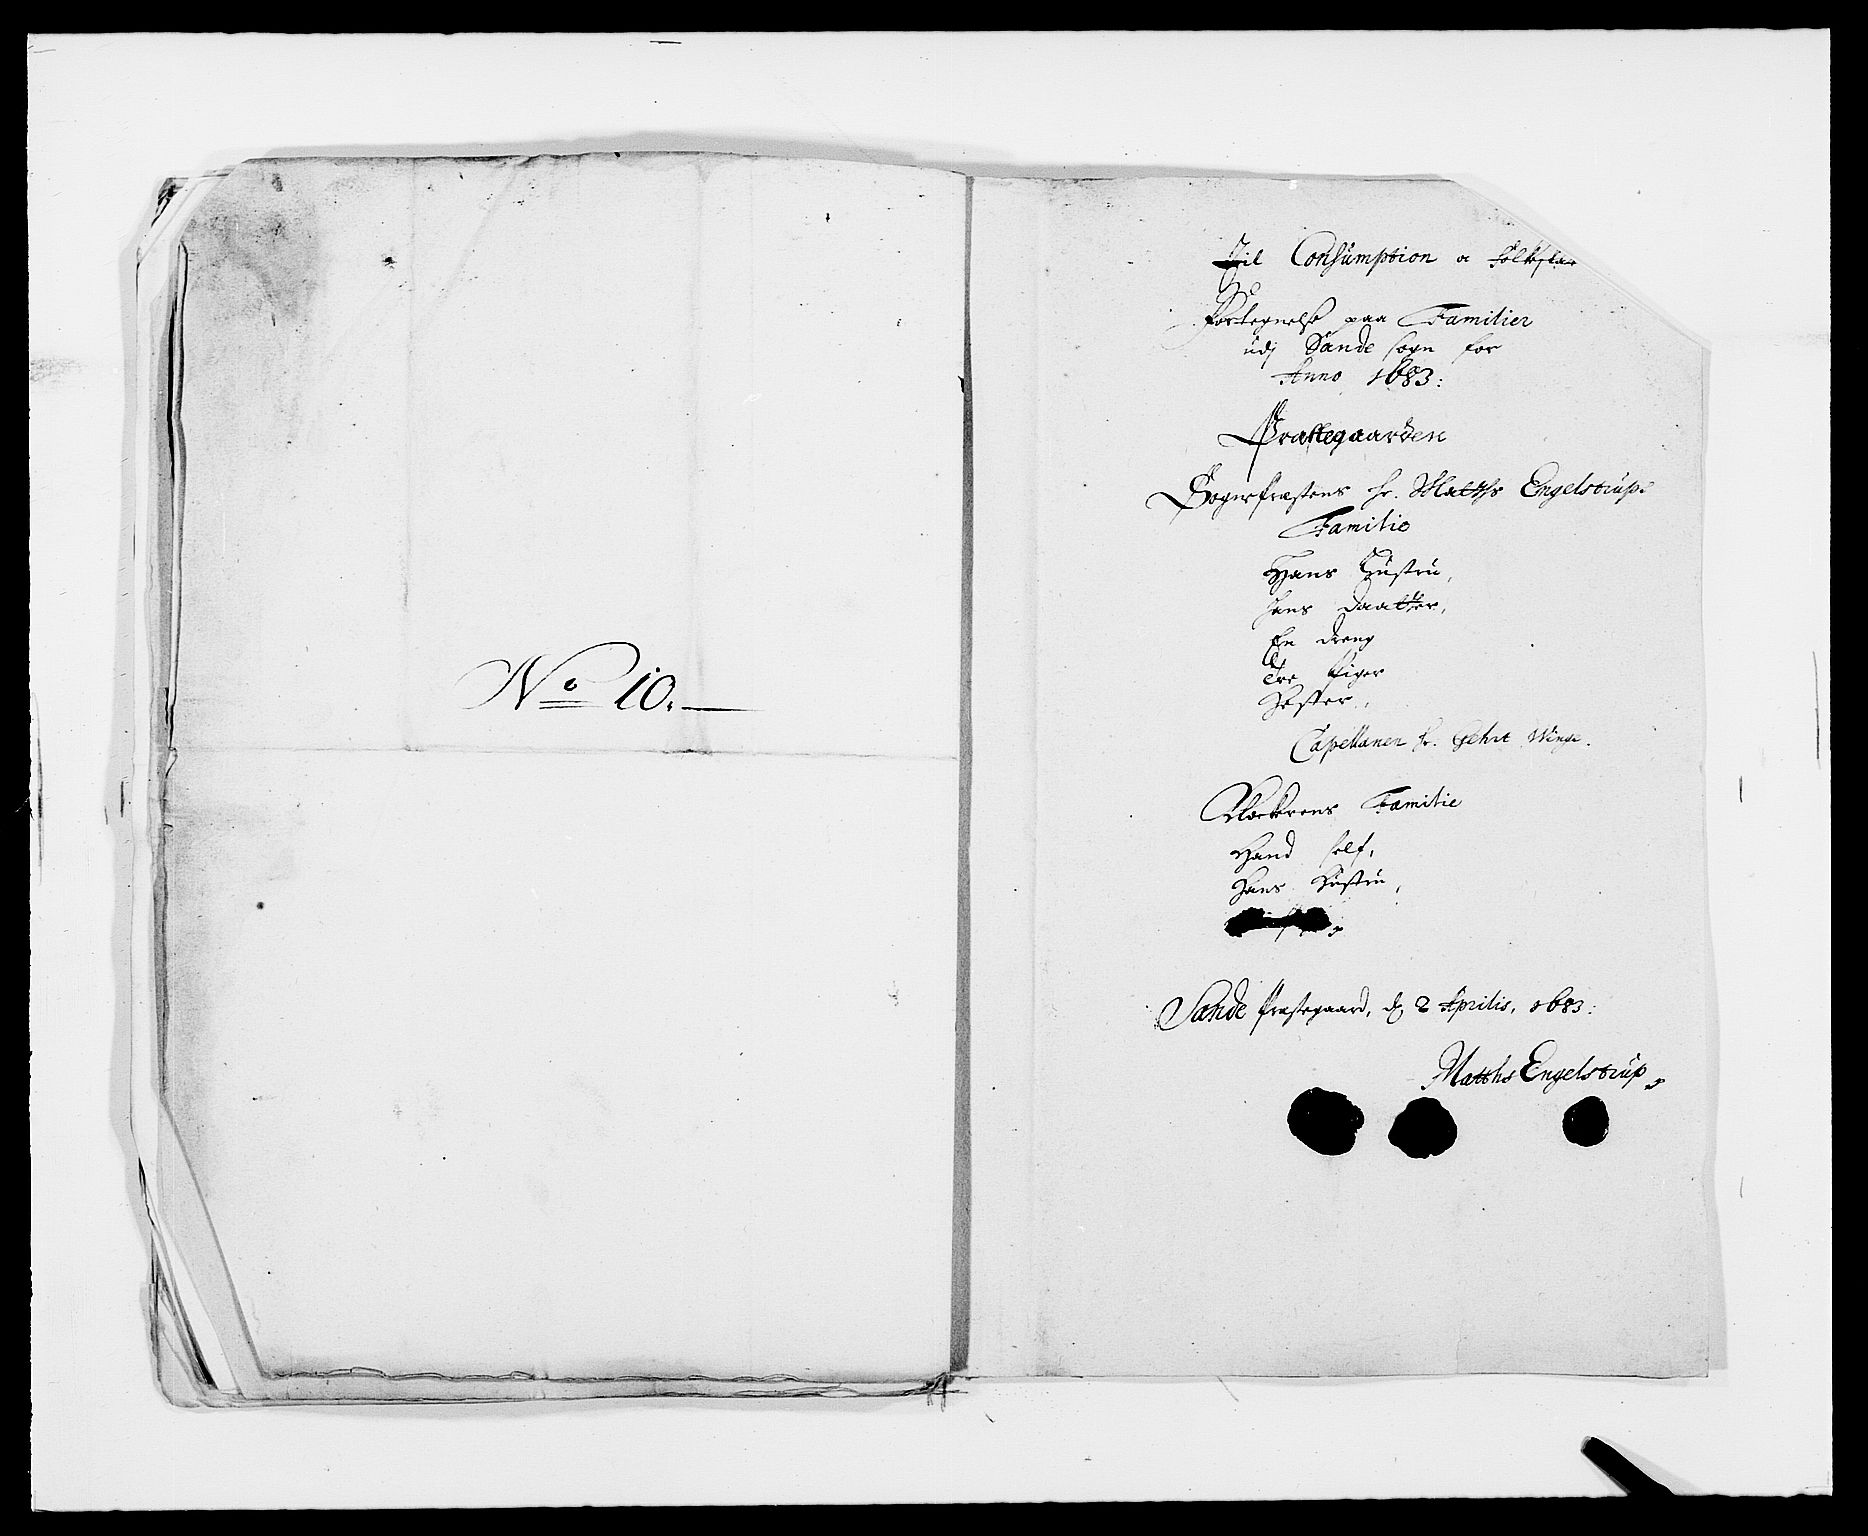 No 10.
Til Consumption
Fortegnelse paa Familier
udj Sande sogn for
Anno 1683:
Præstegaarden
Sognepræstens hr. Matths Engelstrups
Familie
Hans Hustru,
hans daatter,
En dreng
Tre piger
Capellanen hr. Gehrt Winge.
Klockerens Familie
Hand self,
Hans Hustru,
Sande præstegaard, d 2 Aprilis, 1683.
Matths Engelstrup